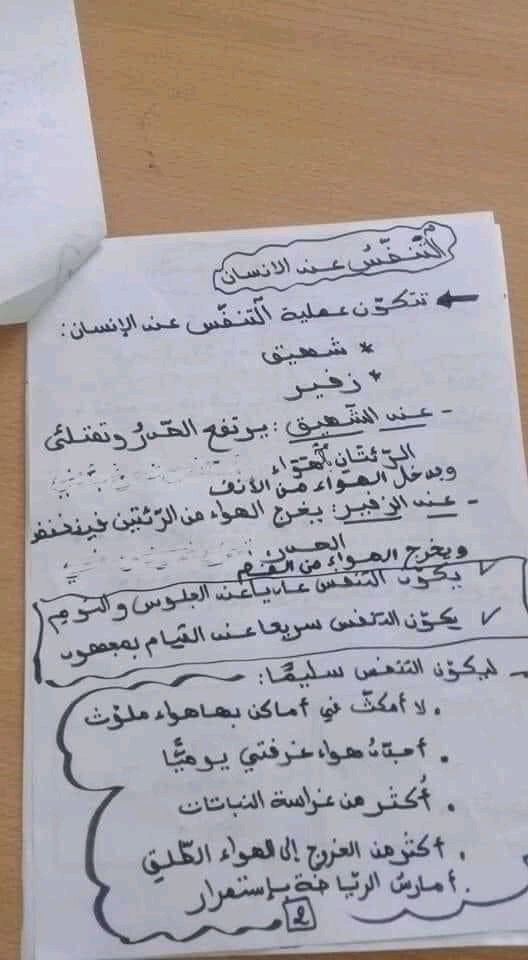 التّنفّسُ عند الانسان
تتكوّن عملية التّنفّس عند الإنسان:
* شهيق
* زفير
- عند الشّهيق: يرتفع الصّدرُ وتمتلئ
الرّئتان بالهَوَاء
ويدخل الهواء من الأنف
- عند الزفير: يخرج الهواء من الرّئتين فينخفض
الصدر
ويخرج الهواء من الفم
✓ يكوّن التنفس عاديا عند الجلوس والنوم
✓ يكوّن التنفس سريعا عند القيام بمجهود
- ليكوّن التنفس سليمًا:
. لا أمكثّ في أماكن بها هواء ملوّث
. هواء غرفتي يوميًّا
. أُكثر من غراسة النباتات
. أكثر من الخروج إلى الهواء الطّليق
. أمارسُ الرّياضة بإستمرار
2